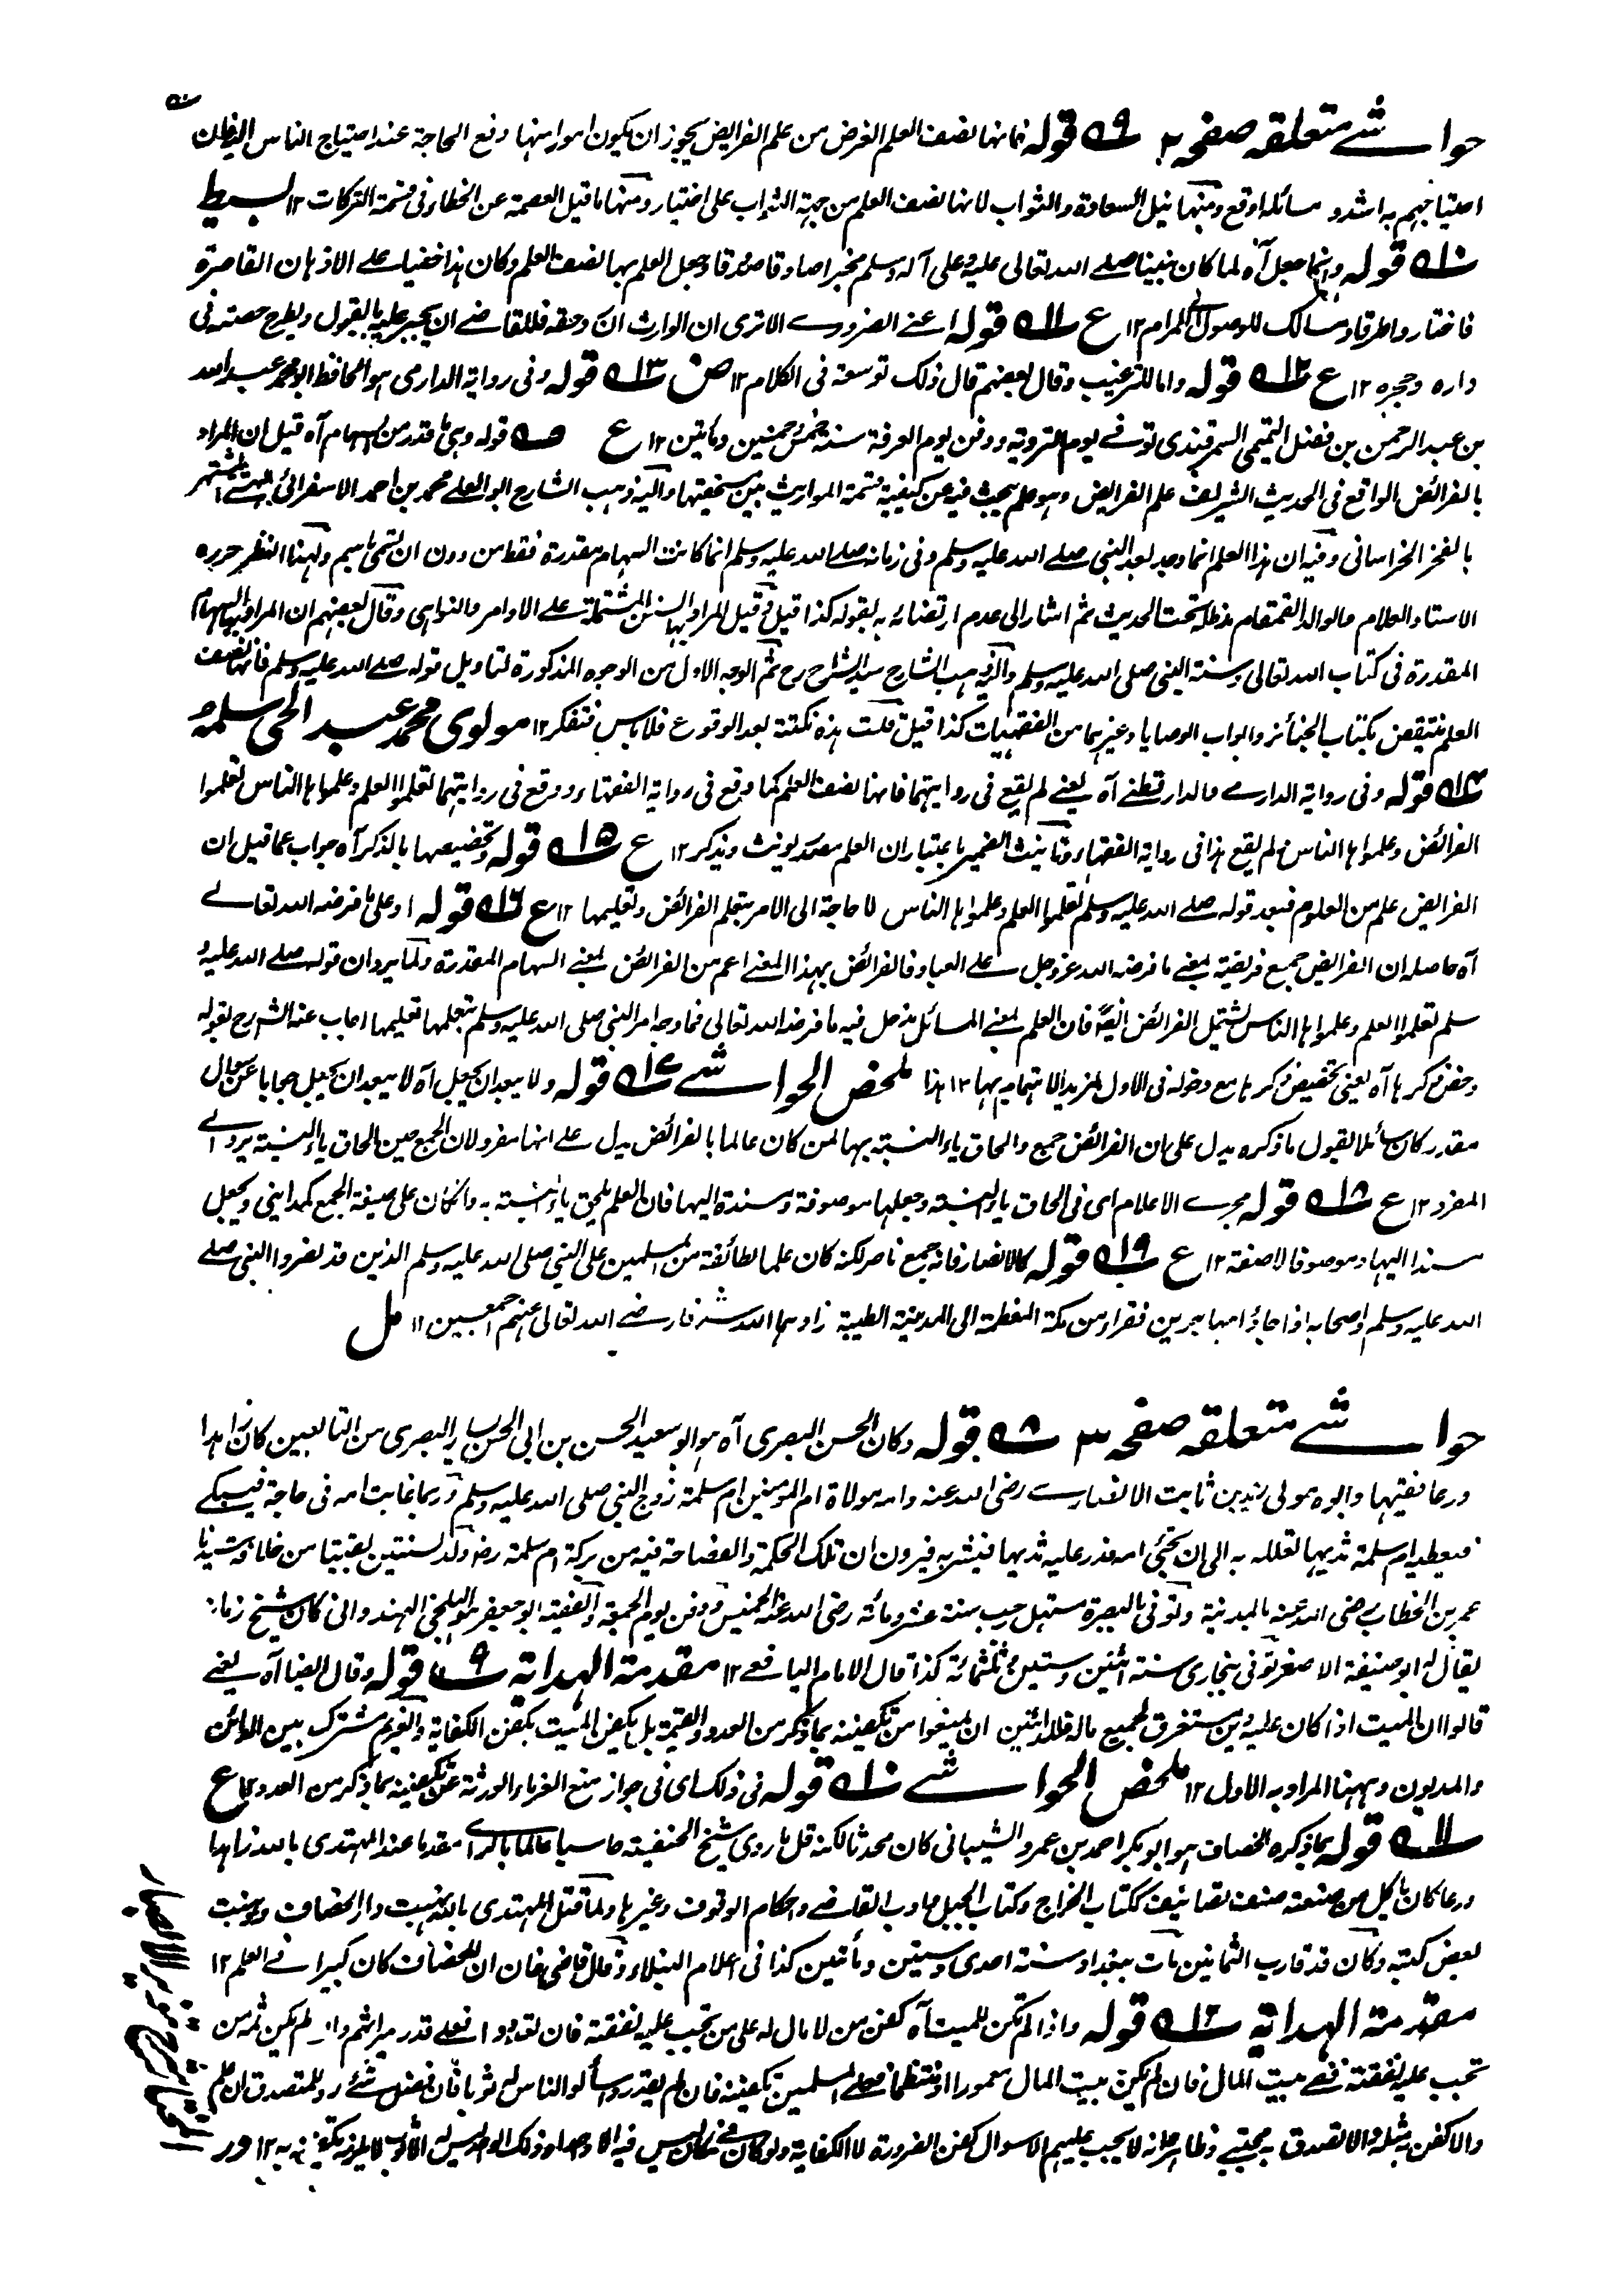 حواشے متعلقہ صفحہ ۲ ؎۹ قولہ فانہا نصف العلم الغرض من علم الفرایض یجوز ان یکون امورا منہا دفع الحاجة عند احتیاج الناس
احتیاجہم بہ اشد و مسائلہ اوقع ومنہا نیل السعادة والثواب لانہا نصف العلم من جہة الثواب علی اختیار ومنہا ما قیل العصمة عن الخطاء فی قسمة الترکات ۱۲ بسیط
؎۱۰ قولہ وانما جعل آہ لما کان نبینا صلے اللہ تعالی علیہ وعلی آلہ وسلم مخبرا صادقا مصدوقا وجعل العلم بہا نصف العلم وکان ہذا خفیا علے الاذہان القاصرة
فاختار واطرقا ومسالک للوصول الی المرام ۱۲ ع ؎۱۱ قولہ اعنے الضروری الا تری ان الوارث ان رد حقہ فللقاضے ان یجبر علیہ بالقبول ویطرح حصتہ فی
دارہ وحجرہ ۱۲ ع ؎۱۲ قولہ واما للترغیب وقال بعضہم قال ذلک توسعة فی الکلام ۱۲ ض ؎۱۳ قولہ وفی روایة الدارمی ہو الحافظ ابو محمد عبد اللہ
بن عبد الرحمن بن فضل التمیمی السمرقندی توفے یوم الترویة ودفن یوم العرفة سنة خمس وخمسین ومائتین ۱۲ ع قولہ وہی ما قدر من السہام آہ قیل ان المراد
بالفرائض الواقع فی الحدیث الشریف علم الفرایض وہو علم یبحث فیہ عن کیفیة قسمة المواریث بین مستحقیہا والیہ ذہب الشارح ابو العلے محمد بن احمد الاسفرائی المشتہر
بالفخر الخراسانی وفیہ ان ہذا العلم انما وجد بعد النبی صلے اللہ علیہ وسلم وفی زمانہ صلے اللہ علیہ وسلم انما کانت السہام مقدرة فقط من دون ان تسمی باسم ولہذا النظر حررہ
الاستاد العلام والوالد القمقام مدظلہ تحت الحدیث ثم اشار الی عدم ارتضائہ بہ بقولہ کذا قیل وقیل المراد بہا السنن المشتملة علے الاوامر والنواہی وقال بعضہم ان المراد بہا السہام
المقدرة فی کتاب اللہ تعالی وسنة النبی صلی اللہ علیہ وسلم والیہ ذہب الشارح سید الشراح رح ثم الوجہ الاول من الوجوہ المذکورة لتاویل قولہ صلے اللہ علیہ وسلم فانہا نصف
العلم منتقض بکتاب الجنائز وابواب الوصایا وغیرہما من الفقہیات کذا قیل قلت ہذہ نکتة بعد الوقوع فلا باس فتفکر ۱۲ مولوی محمد عبد الحی سلمہ
؎۱۴ قولہ وفی روایة الدارمے والدارقطنے آہ یعنے لم یقع فی روایتہما فانہا نصف العلم کما وقع فی روایة الفقہاء ووقع فی روایتہما تعلموا العلم وعلموہا الناس تعلموا
الفرائض وعلموہا الناس ولم یقع ہذا فی روایة الفقہاء وتانیث الضمیر باعتبار ان العلم مصدر یونث ویذکر ۱۲ ع ؎۱۵ قولہ وتخصیصہا بالذکر آہ جواب عما قیل ان
الفرایض علم من العلوم فبعد قولہ صلے اللہ علیہ وسلم تعلموا العلم وعلموہا الناس لا حاجة الی الامر بتعلم الفرائض وتعلیمہا ۱۲ ع ؎۱۶ قولہ او علی ما فرضہ اللہ تعالے
آہ حاصلہ ان الفرایض جمیع فریضة بمعنے ما فرضہ اللہ عز وجل علے العباد فالفرائض بہذا المعنے اعم من الفرائض بمعنے السہام المقدرة ولما یرد ان قولہ صلے اللہ علیہ و
سلم تعلموا العلم وعلموہا الناس یشتمل الفرائض ایضا فان العلم بمعنے المسائل یدخل فیہ ما فرضہ اللہ تعالی فما وجہ امر النبی صلی اللہ علیہ وسلم بتعلمہا وتعلیمہا اجاب عنہ الشارح بقولہ
وخص ذکرہا آہ یعنی تخصیص ذکرہا مع دخولہ فی الاول لمزید الاہتمام بہا ۱۲ ہذا ملخص الحواشے ؎۱۷ قولہ ولا یبعد ان یجعل آہ لا یبعد ان یجعل جوابا عن سوال
مقدر کان سائلا یقول ما ذکرہ یدل علی ان الفرائض جمع والحاق یاء النسبة بہا لمن کان عالما بالفرائض یدل علے انہا مفرد لان الجمع حین الحاق یاء النسبة یرد الے
المفرد ۱۲ ع ؎۱۸ قولہ مجرے الاعلام ای فی الحاق یاء النسبة وجعلہا موصوفة ومسندة الیہا فان العلم یلحق یاء النسبة بہ وان کان علی صیغة الجمع کمداینی ویجعل
مسندا الیہا وموصوفا لا صفة ۱۲ ع ؎۱۹ قولہ کالانصار فانہ جمع ناصر لکنہ کان علما لطائفة من المسلمین علی النبی صلی اللہ علیہ وسلم الذین قد نصروا النبی صلے
اللہ علیہ وسلم واصحابہ اذا جاؤا مہاجرین فقراء من مکة المعظمة الی المدینة الطیبة زادہما اللہ شرفا رضے اللہ تعالی عنہم اجمعین ۱۲ مل
حواشے متعلقہ صفحہ ۳ ؎۸ قولہ وکان الحسن البصری آہ ہو ابو سعید الحسن بن ابی الحسن یسار البصری من التابعین کان زاہدا
ورعا فقیہا وابوہ مولی زید بن ثابت الانصارے رضی اللہ عنہ وامہ مولاة ام المومنین ام سلمة زوج النبی صلی اللہ علیہ وسلم وربما غابت امہ فی حاجة فیبکے
فیعطیہ ام سلمة ثدیہا تعللہ بہ الی ان تجئی امہ فدر علیہ ثدیہا فیشربہ فیرون ان تلک الحکمة والفصاحة فیہ من برکة ام سلمة رضہ ولد لسنتین بقیتا من خلافة سیدنا
عمر بن الخطاب رضی اللہ عنہ بالمدینة وتوفی بالبصرة مستہل رجب سنة عشر ومائة رضی اللہ عنہ الخمیس ودفن یوم الجمعة والفقیہ ابو جعفر ہو البلخی الہندوانی کان شیخ زمانہ
یقال لہ ابو حنیفة الاصغر توفی ببخاری سنة اثنین وستین وثلثمائة کذا قال الامام الیافعے ۱۲ مقدمة الہدایة ؎۹ قولہ وقال ایضا آہ یعنے
قالوا ان المیت اذا کان علیہ دین مستغرق لجمیع مالہ فللدائنین ان یمنعوا من تکفینہ بما ذکر من العدد والقیمة بل یکفن المیت بکفن الکفایة والغریم مشترک بین الدائن
والمدیون وہہنا المراد بہ الاول ۱۲ ملخص الحواشے ؎۱۰ قولہ فی ذلک ای فی جواز منع الغرماء الورثة عن تکفینہ بما ذکر من العدد ۱۲ ع
؎۱۱ قولہ بما ذکرہ الخصاف ہو ابو بکر احمد بن عمرو الشیبانی کان محدثا لکنہ قل ما روی شیخ الحنفیة حاسبا عالما بالرای مقدما عند المہتدی باللہ زاہدا
ورعا کان یاکل من صنعتہ صنف تصانیف ککتاب الخراج وکتاب الحیل وادب القاضے واحکام الوقوف وغیرہا ولما قتل المہتدی باللہ نہبت دار الخصاف ونہبت
بعض کتبہ وکان قد قارب الثمانین مات ببغداد سنة احدی وستین ومائتین کذا فی اعلام النبلاء وقال قاضی خان ان الخصاف کان کبیرا فے العلم ۱۲
مقدمة الہدایة ؎۱۲ قولہ واذا لم تکن للمیت آہ کفن من لا مال لہ علی من تجب علیہ نفقتہ فان تعددوا فعلے قدر میراثہم وان لم یکن ثمہ من
تجب علیہ نفقتہ ففے بیت المال فان لم یکن بیت المال معمورا او منتظما فعلے المسلمین تکفینہ فان لم یقدروا سألوا الناس لہ ثوبا فان فضل شئے رد للمتصدق ان علم
والا کفن بہ مثلہ والا تصدق بہ مجتبے وظاہرہ انہ لا یجب علیہم الا سوال کفن الضرورة لا الکفایة ولو کان فی مکان لیس فیہ الا واحد وذلک الواحد لیس لہ الا ثوب لا یلزمہ تکفینہ بہ ۱۲ در